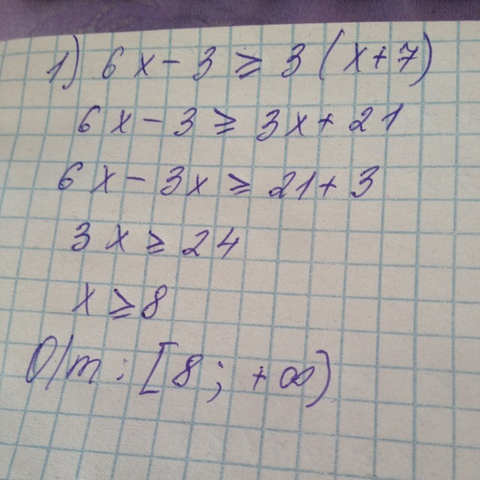 1) 6x - 3 ≥ 3 (x + 7)
6x - 3 ≥ 3x + 21
6x - 3x ≥ 21 + 3
3x ≥ 24
x ≥ 8
О/т : [8 ; +∞)